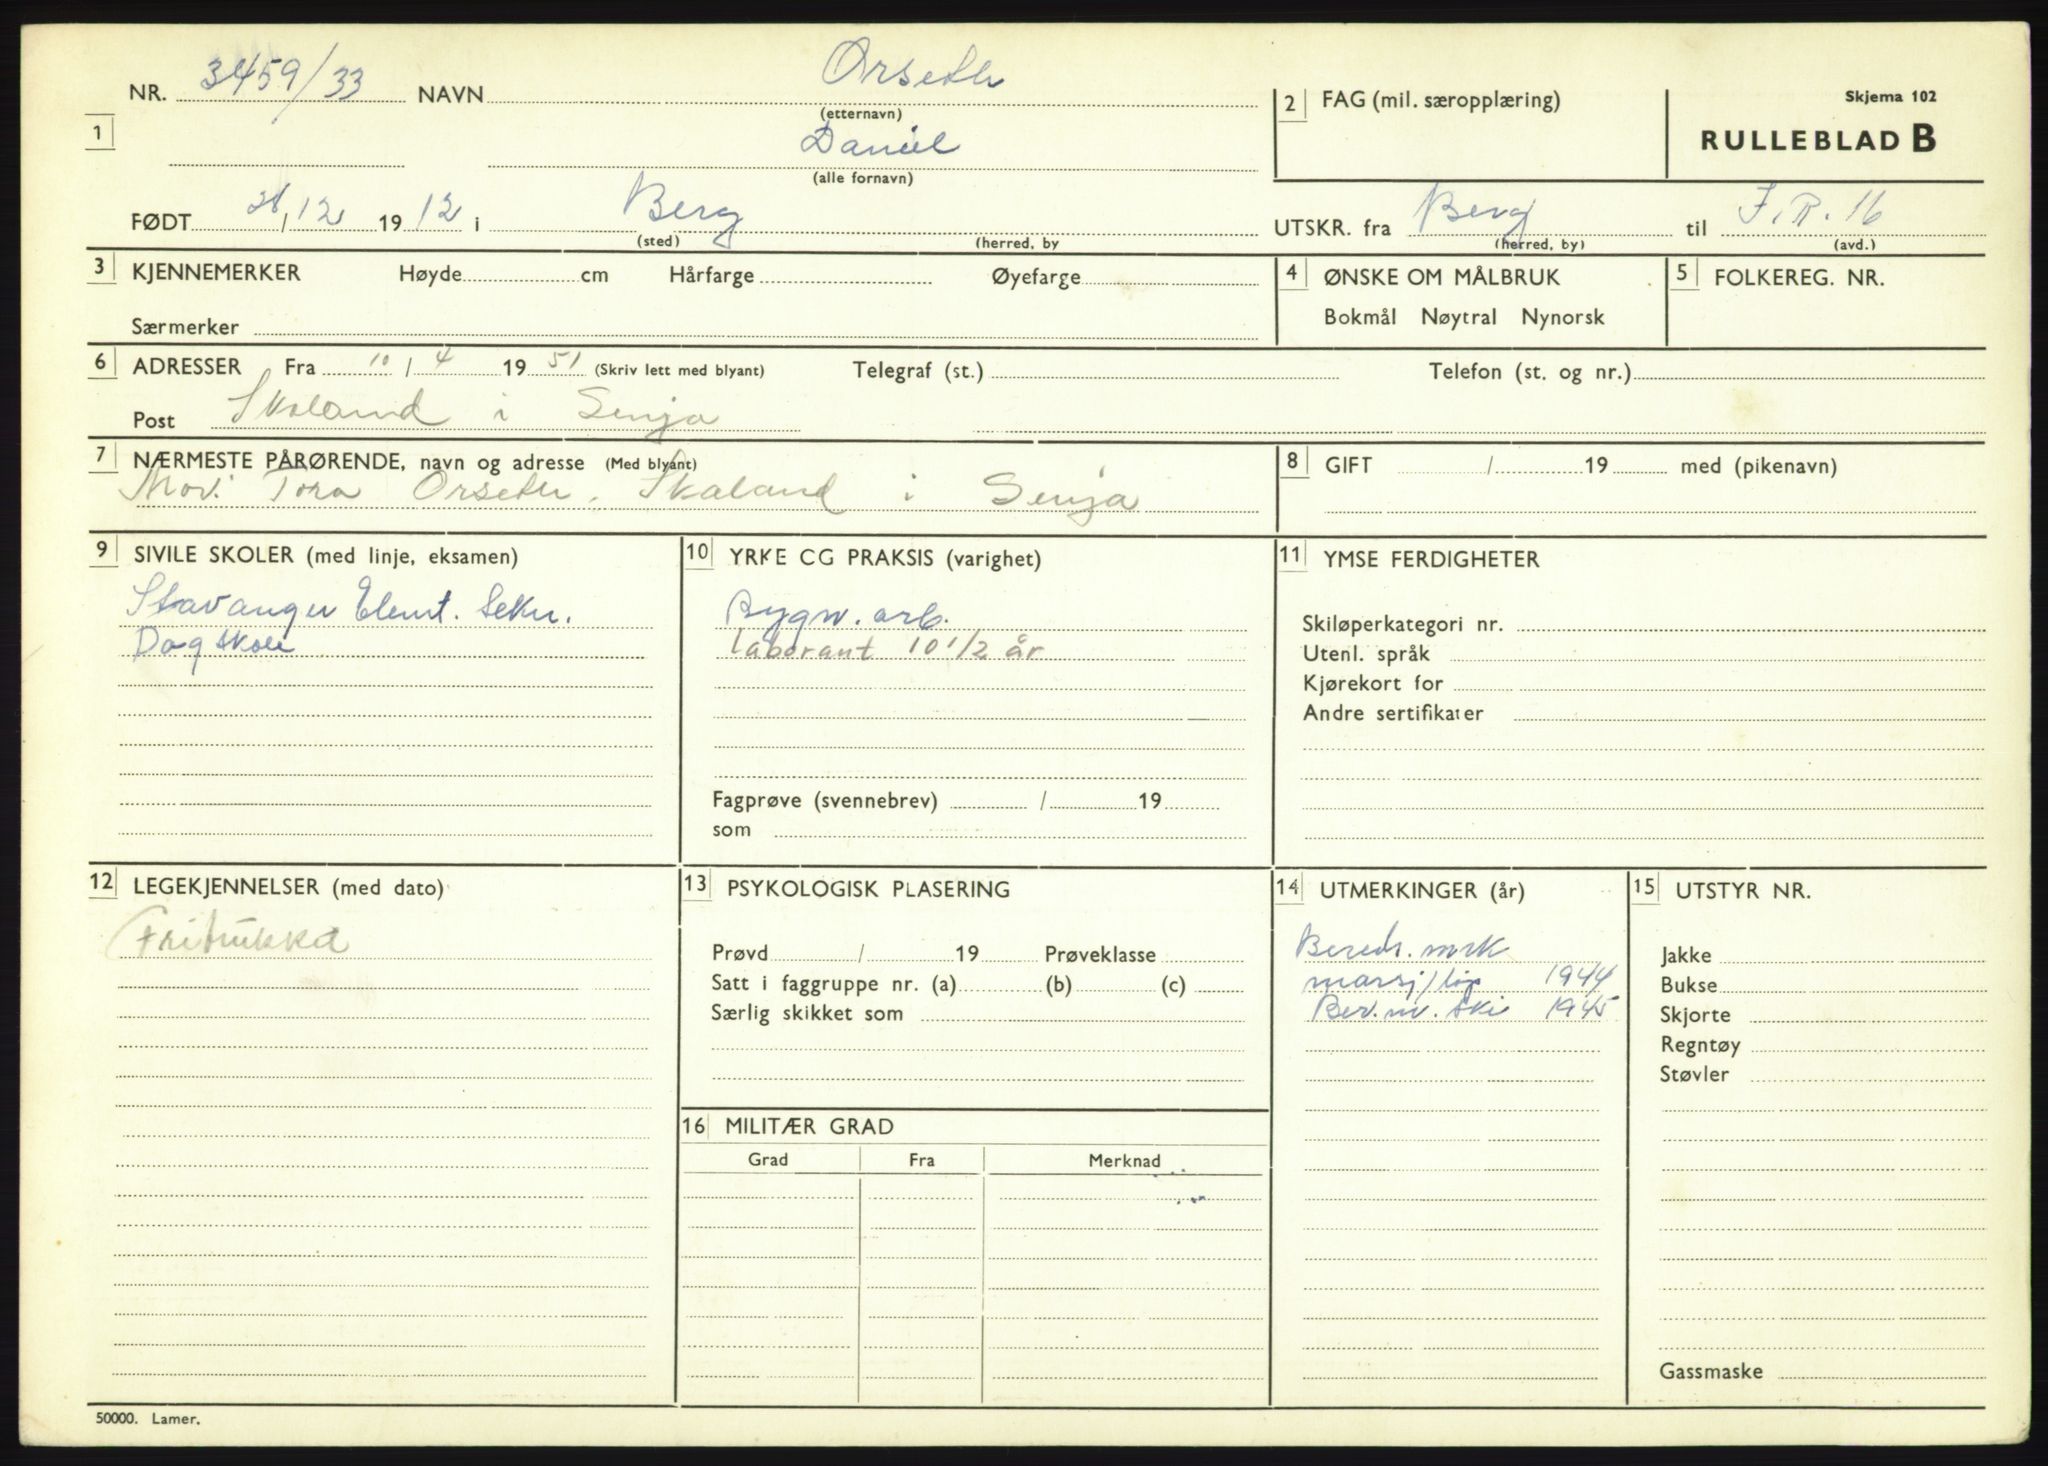 NR. 3459/33 NAVN Orseth
(etternavn)
1 Daniel
(alle fornavn)
2 FAG (mil. særopplæring)
Skjema 102
RULLEBLAD B
FØDT 12 19 12 i Berg
(sted) (herred, by
UTSKR. fra Berg til I.R. 16
(herred, by) (avd.)
3 KJENNEMERKER Høyde cm Hårfarge Øyefarge
Særmerker
4 ØNSKE OM MÅLBRUK
Bokmål Nøytral Nynorsk
5 FOLKEREG. NR.
6 ADRESSER Fra 10 / 4 19 51 (Skriv lett med blyant) Telegraf (st.) Telefon (st. og nr.)
Post Skaland i Senja
7 NÆRMESTE PÅRØRENDE, navn og adresse (Med blyant)
Mor: Tora Orseth. Skaland i Senja
8 GIFT / 19 med (pikenavn)
9 SIVILE SKOLER (med linje, eksamen)
Stavanger Elemt. tekn.
Dagskole
10 YRKE CG PRAKSIS (varighet)
Bygn. arb.
laborant 10 1/2 år
Fagprøve (svennebrev) / 19
som
11 YMSE FERDIGHETER
Skiløperkategori nr.
Utenl. språk
Kjørekort for
Andre sertifikater
12 LEGEKJENNELSER (med dato)
13 PSYKOLOGISK PLASERING
Prøvd / 19 Prøveklasse
Satt i faggruppe nr. (a) (b) (c)
Særlig skikket som
14 UTMERKINGER (år)
Bereds. mrk
marsj/løp 1944
Ber. m. ski 1945
15 UTSTYR NR.
Jakke
Bukse
Skjorte
Regntøy
Støvler
Gassmaske
16 MILITÆR GRAD
Grad Fra Merknad
50000. Lamer.